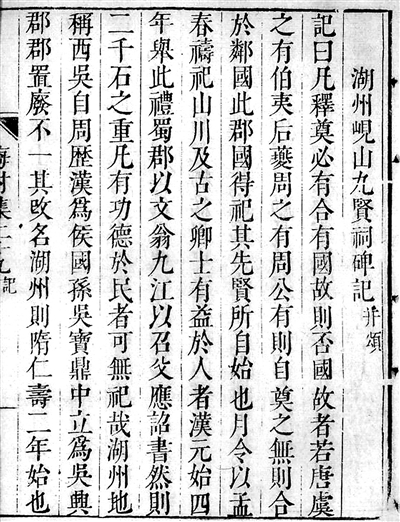 湖州峴山九賢祠碑記并頌
記曰凡釋奠必有合有國故則否國故者若唐虞
之有伯夷后夔周之有周公有則自奠之無則合
於鄰國此郡國得祀其先賢所自始也月令以孟
春禱祀山川及古之卿士有益於人者漢元始四
年舉此禮蜀郡以文翁九江以召父應詔書然則
二千石之重凡有功德於民者可無祀哉湖州地
稱西吳自周歷漢爲侯國孫吳寶鼎中立爲吳興
郡郡置廢不一其改名湖州則隋仁壽二年始也
集二十九記